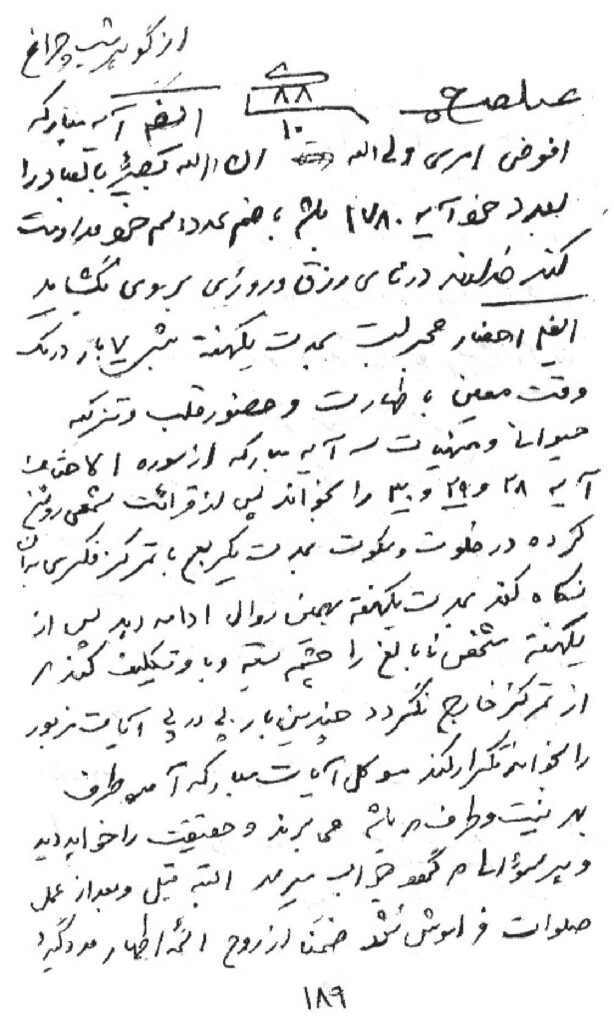 از گوهر شب چراغ
۸۸
۱۰
ایضم آیه مبارکه
افوض امری الی الله ان الله بصیر بالعباد را
بعدد خود آیه ۱۷۸۰ باشد یا هم عدد اسم خود مداومت
کند خداوند درهای رزق و روزی بروی بگشاید
ایضم احضار مجرب است بمدت یکهفته شبی ۷ بار در یک
وقت معین با طهارت و حضور قلب و تزکیه
حیوانی و بهنیت سه آیه مبارکه از سوره الاحقاف
آیه ۲۸ و ۲۹ و ۳۰ را بخواند پس از قرائت شمعی روشن
کرده در خلوت و سکوت بمدت یکربع با تمرکز فکری به آن
نگاه کند بمدت یکهفته بهمین روال ادامه دهد پس از
یکهفته شخص نابالغ را چشم بسته و باو تکلیف کند
از تمرکز خارج نگردد چندین بار پی در پی آیات مزبور
را بخواند تکرار کند موکل آیات مبارکه آمده طرف
به نیت و طرف باشد می برند و حقیقت را خواهد دید
و هر سؤالی جواب میدهد البته قبل و بعد از عمل
صلوات فراموش نشود ضمنا از روح ائمه اطهار مدد گیرد
۱۸۹